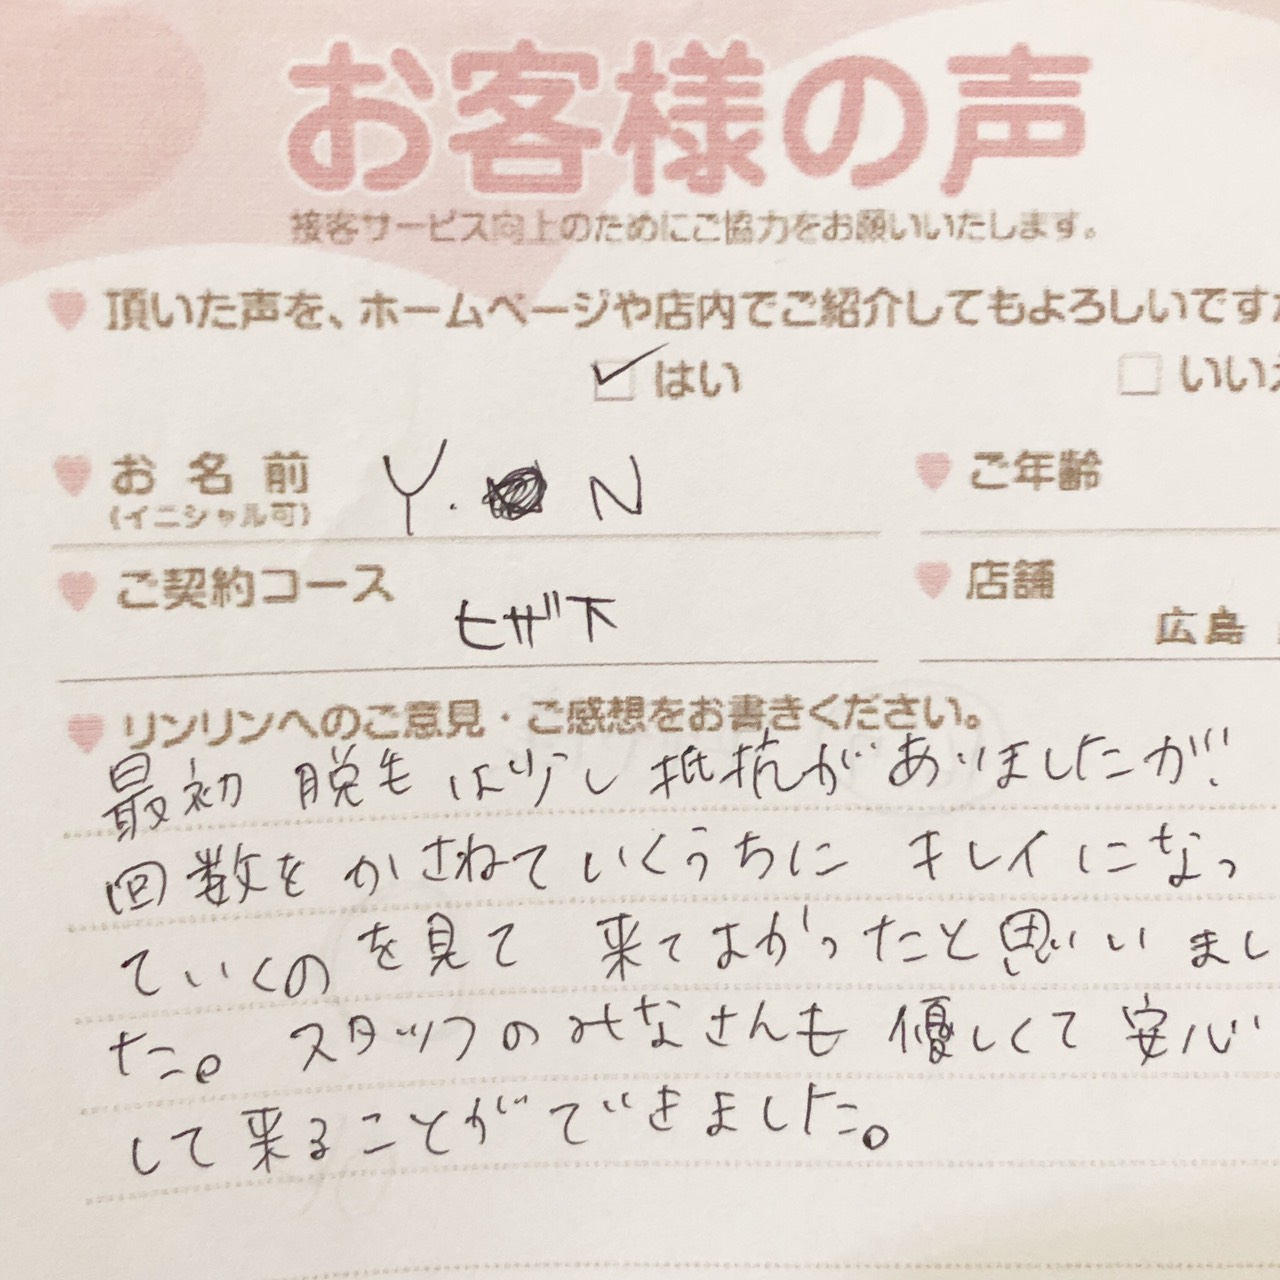 お客様の声
接客サービス向上のためにご協力をお願いいたします。
頂いた声を、ホームページや店内でご紹介してもよろしいですか
はい いいえ
お名前 Y. N ご年齢
(イニシャル可)
ご契約コース ヒザ下 店舗
広島
リンリンへのご意見・ご感想をお書きください。
最初 脱毛は少し抵抗がありましたが、
回数をかさねていくうちに キレイになっ
ていくのを見て 来てよかったと思いいまし
た。スタッフのみなさんも 優しくて 安心
して来ることができました。